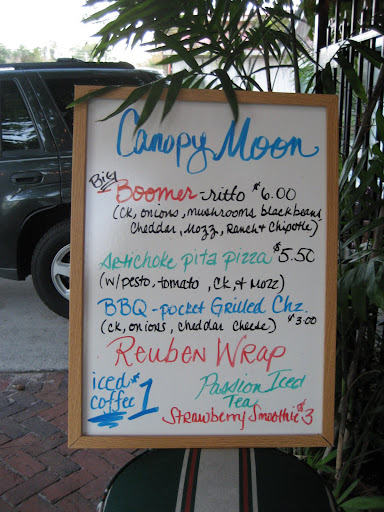 Canopy Moon
Big Boomer-ritto $6.00
(ck, onions, mushrooms, blackbeans,
cheddar, Mozz, Ranch + Chipotle)
Artichoke pita pizza $5.50
(w/pesto, tomato, ck, + Mozz)
BBQ-pocket Grilled Chz.
(ck, onions, cheddar cheese) $3.00
Reuben Wrap
iced coffee $1
Passion Iced
Tea
Strawberry Smoothie $3